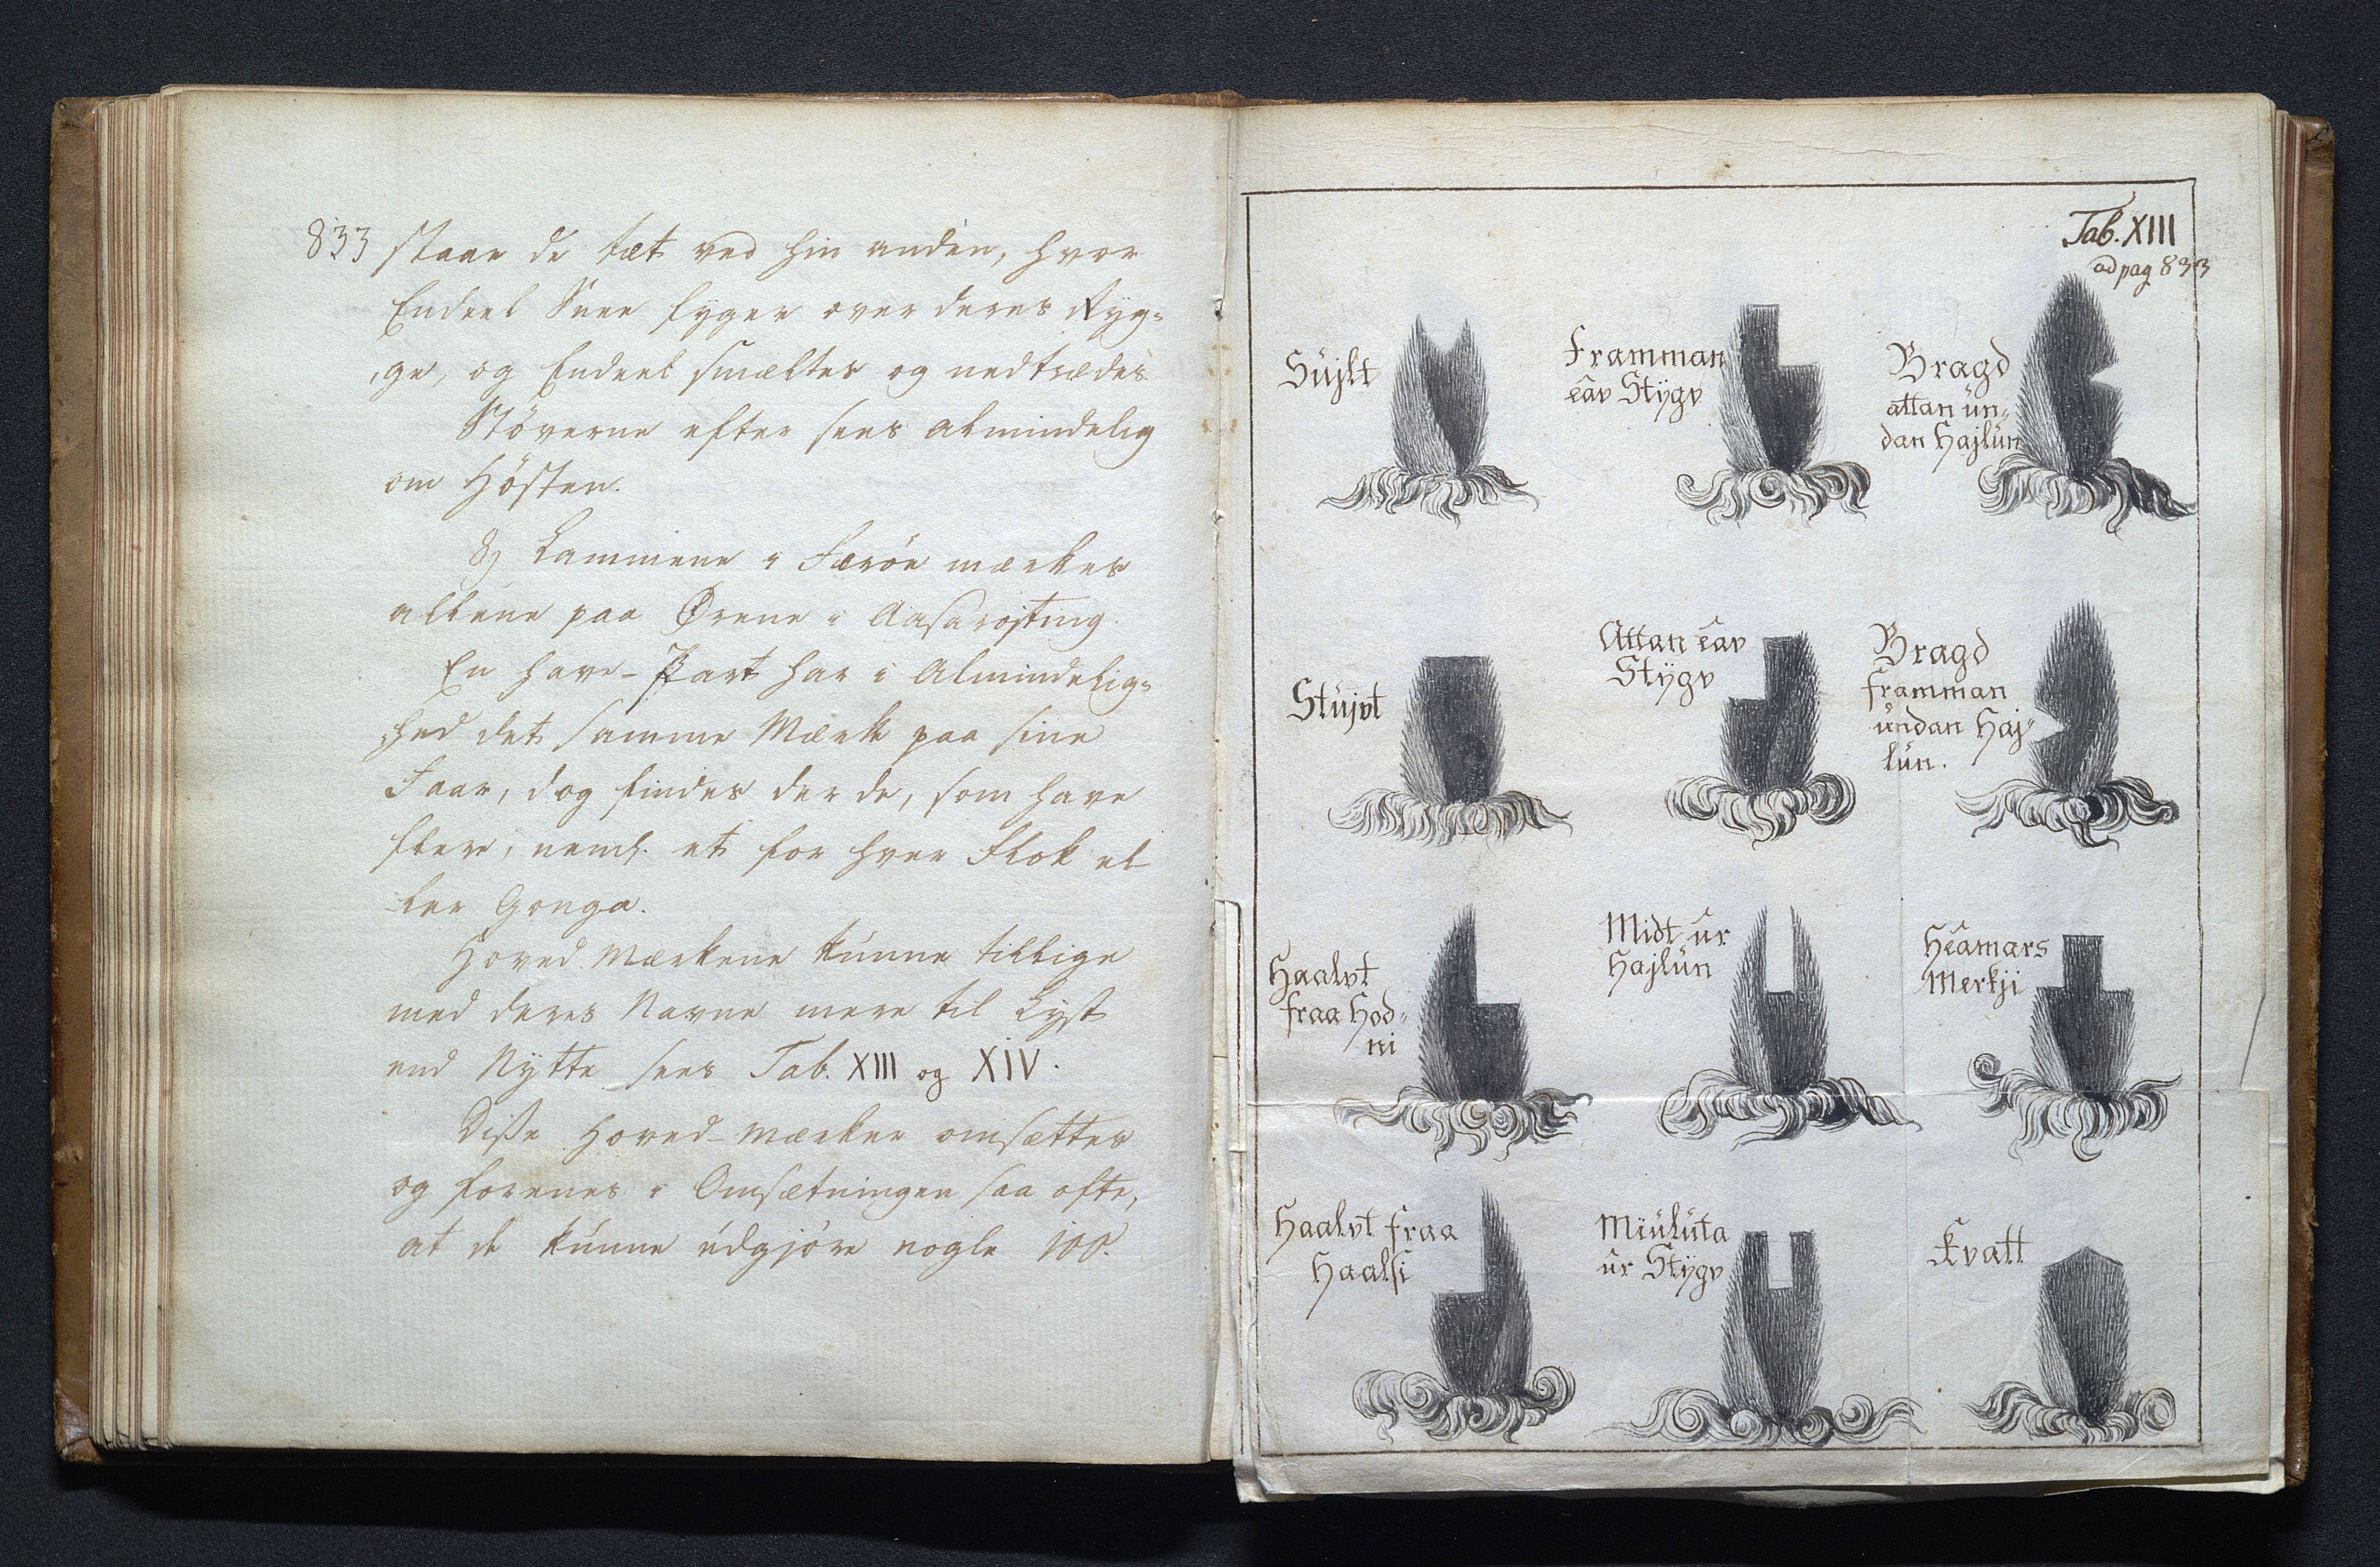 833 staae de tæt ved hin anden, hvor
Endeel Snee fyger over deres Ryg=
ge, og Endeel smælter og nedtrædes
Støverne efter sees almindelig
om Hösten.
8) Lammene i Færöe mærkes
allene paa Ørene i Aasarøjting.
En Have-Part har i Almindelig=
hed det samme Mærke paa sine
Faar, dog findes der de, som have
flere, neml. et for hver Flok el
ler Gonga.
Hoved Mærkene kunne tillige
med deres Navne mere til Lyst
end Nÿtte sees Tab. XIII og XIV.
Diße Hoved-Mærker omsættes
og forenes i Omsætningen saa ofte,
at de kunne udgjöre nogle 100.
Tab. XIII
ad pag 833
Sujlt
Framman
eav Stÿgv
Bragd
attan un=
dan Hajlun
Stujvt
Attan eav
Stÿgv
Bragd
framman
undan Haj=
lun.
Haalvt
fraa Hod=
ni
Midt ur
Hajlun
Heamars
Merkji
Haalvt fraa
Haalsi
Miuluta
ur Stÿgv
Kvatt